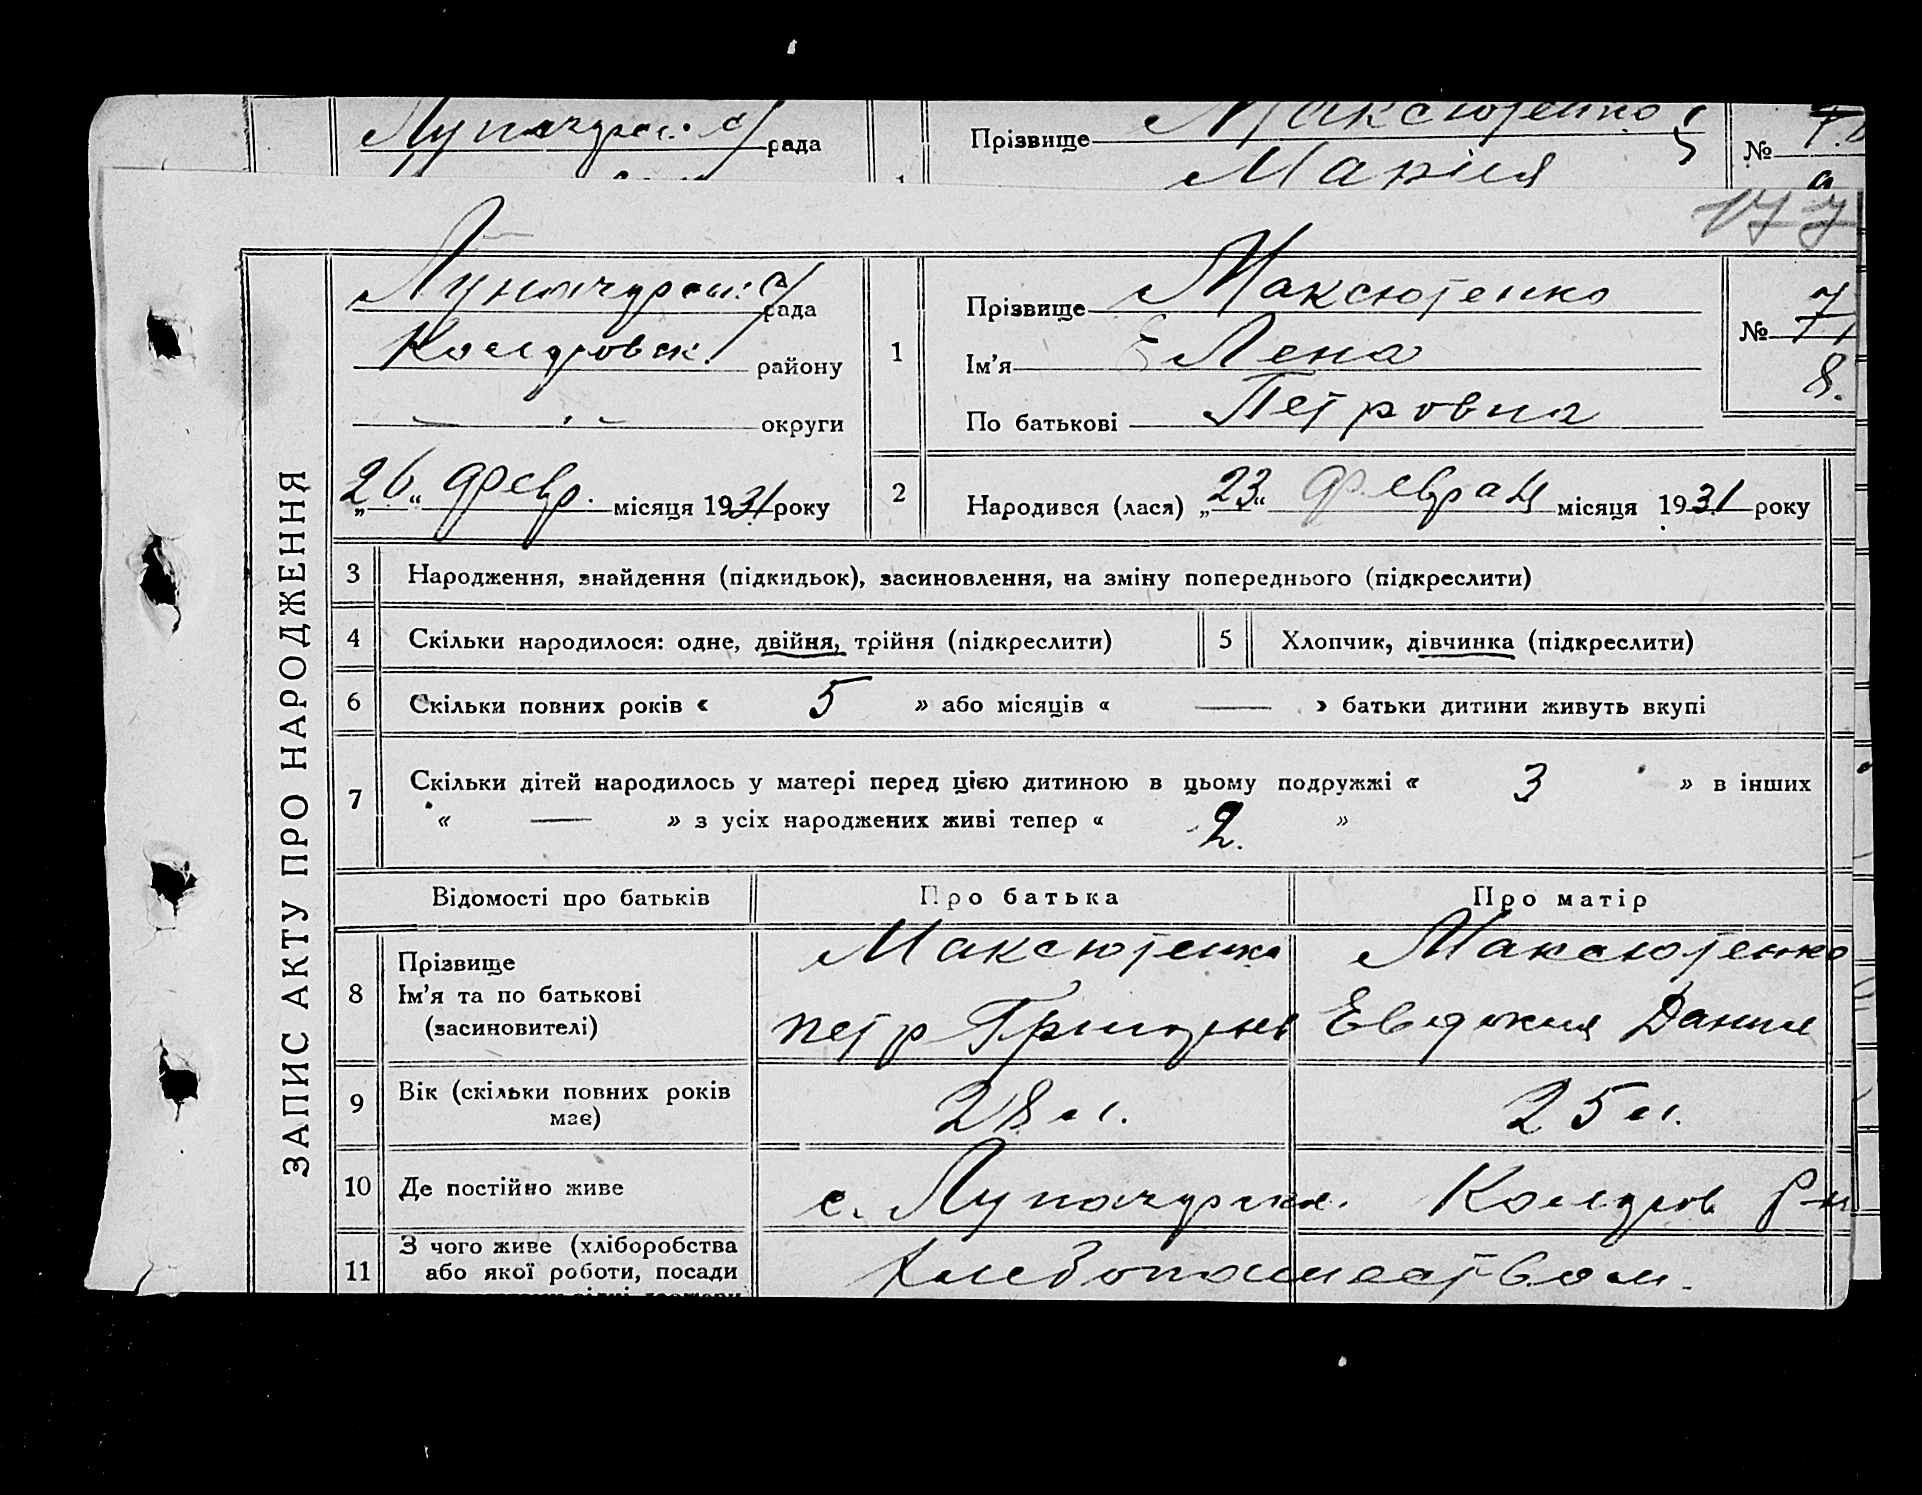 рада
Прізвище Максютенко
№
Мария
177
рада
Прізвище Максютенко
№ 7
району
1
Ім'я Елена
8.
округи
По батькові Петровна
„26“ февр. місяця 1931 року
2
Народився (лася) „23“ февраля місяця 1931 року
ЗАПИС АКТУ ПРО НАРОДЖЕННЯ
3 Народження, знайдення (підкидьок), засиновлення, на зміну попереднього (підкреслити)
4 Скільки народилося: одне, двійня, трійня (підкреслити)
5 Хлопчик, дівчинка (підкреслити)
6 Скільки повних років « 5 » або місяців « — » батьки дитини живуть вкупі
7 Скільки дітей народилось у матері перед цією дитиною в цьому подружжі « 3 » в інших
« — » з усіх народжених живі тепер « 2. »
Відомості про батьків
Про батька
Про матір
8 Прізвище
Ім'я та по батькові
(засиновителі)
Максютенко
Петр
Максютенко
Евдокия Данил
9 Вік (скільки повних років
має)
28 л.
25 л.
10 Де постійно живе
с.
р-н
11 З чого живе (хліборобства
або якої роботи, посади
Хлебопашеством.